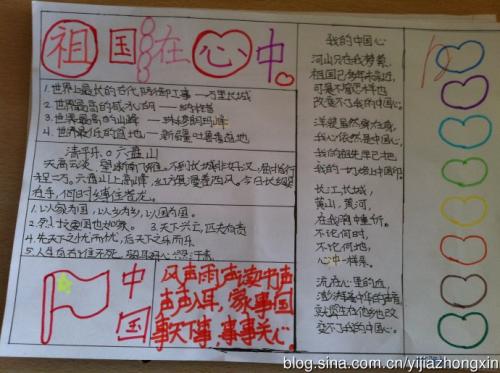 祖国在心中
1.世界上最长的古代防御工事——万里长城
2.世界最高的咸水湖——纳木错
3.世界最高的山峰——珠穆朗玛峰
4.世界最低的盆地——新疆吐鲁番盆地
清平乐。六盘山
天高云淡,望断南飞雁。不到长城非好汉,屈指行
程二万。六盘山上高峰,红旗漫卷西风。今日长缨
在手,何时缚住苍龙。
1.以人家为国,以乡为乡,以国为国。
3.天下兴亡,匹夫有责
4.先天下之忧而忧,后天下之乐而乐。
中国
风声雨声读书声
声声入耳,家事国
事天下事,事事关心。
我的中国心
河山只在我梦萦,
祖国已多年未亲近,
可是不管怎样也
改变不了我的中国心。
洋装虽然穿在身,
我心依然是中国心,
我的祖先早已把
我的一切烙上中国印
长江,长城,
黄山,黄河,
在我胸中重千斤。
不论何时,
不论何地,
心中一样亲。
流在心里的血,
澎湃着中华的声音,
就算生在他乡也改
变不了我的中国心。
blog.sina.com.cn/yijiazhongxin